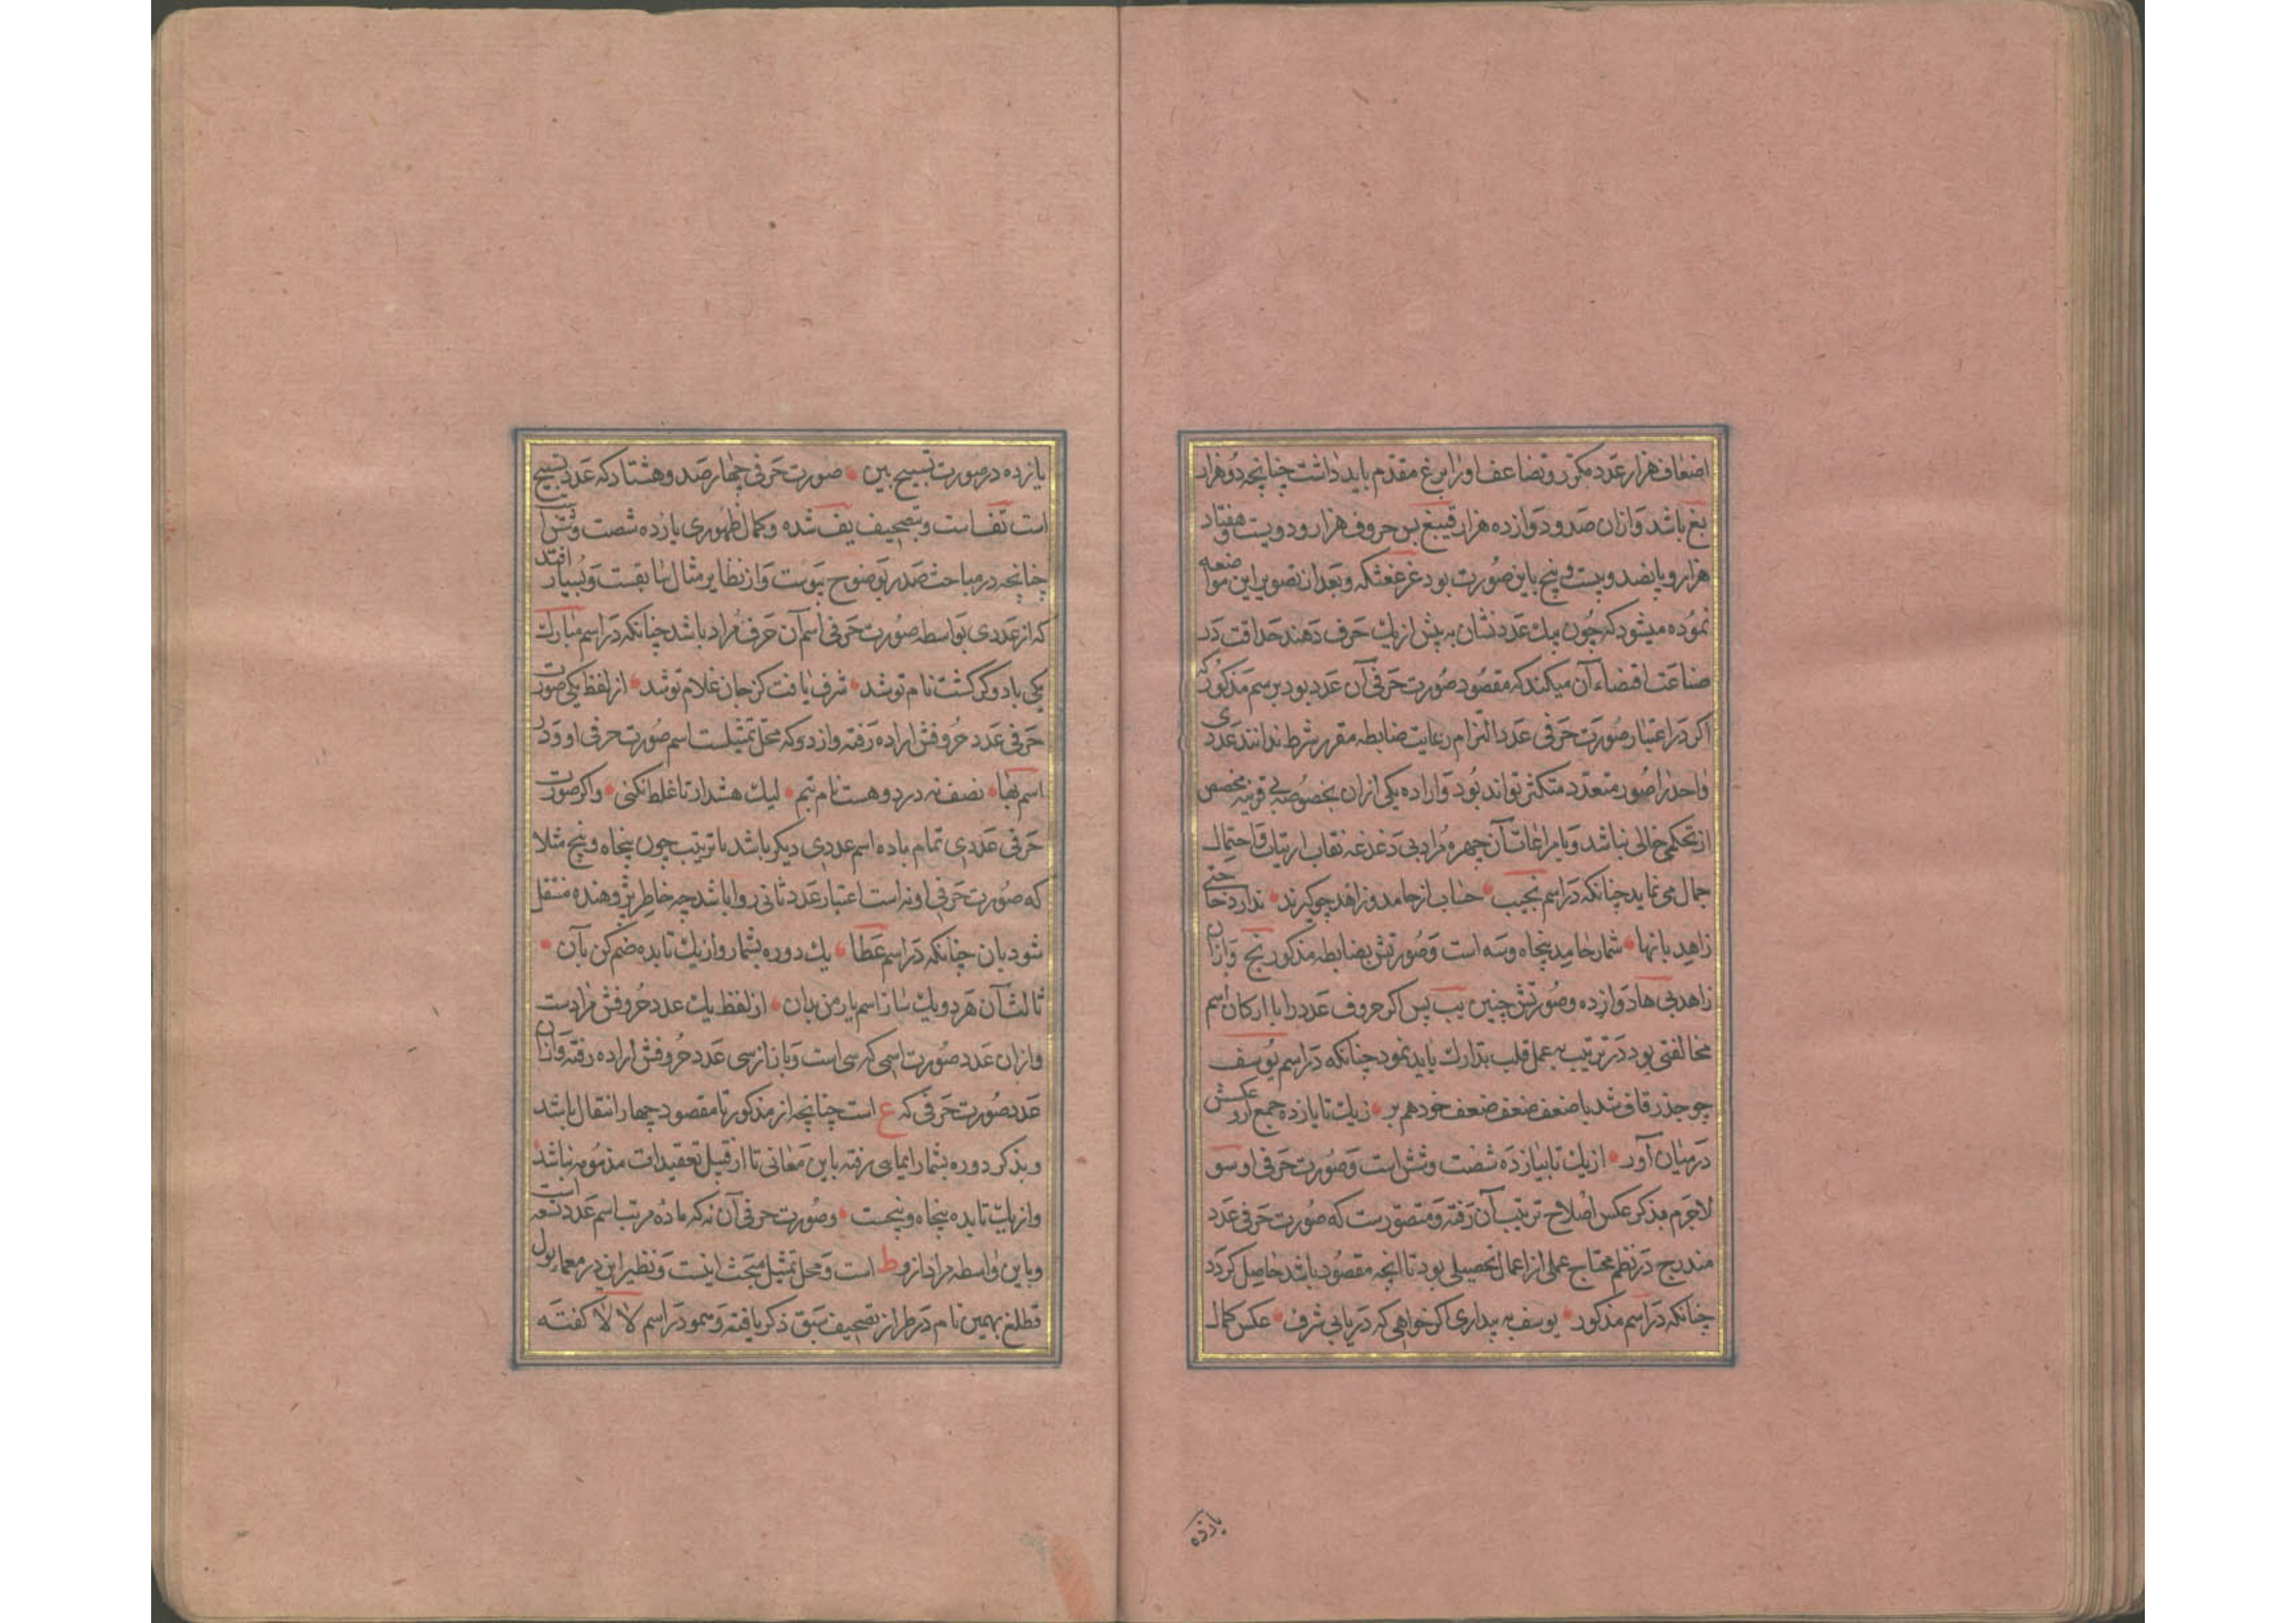 اضعاف هزار عدد مکرر و تضاعف او را بر غ مقدم باید داشت چنانچه دو هزار
بغ باشد و از آن صد و دوازده هزار قیبغ پس حروف هزار و دویست و هفتاد
هزار و پانصد و بیست و پنج باین صورت بود غرعغثکه و بعد از تصویر این مواضعه
نموده میشود که چون بیک عدد نشان به بیش از یک حرف دهند حذاقت در
صناعت اقتضاء آن میکند که مقصود صورت حرفی آن عدد بود بر رسم مذکور که
اگر در اعتبار صورت حرفی عدد التزام رعایت ضابطه مقرر شرط ندانند عددی
واحد را صور متعدد متکثر تواند بود و اراده یکی از ان بخصوصه بی قرینه مخصص
از تحکمی خالی نباشد و با مراعات آن چهره مراد بی دغدغه نقاب ارتیاب و احتمال
جمال می نماید چنانکه در اسم نجیب حساب از حامد و زاهد چو گیرند ندارد
زاهد بانها شمار حامد پنجاه و سه است و صورتش بضابطه مذکور نج و از ان
زاهد بی ها دوازده و صورتش چنین یب پس اگر حروف عدد را با ارکان اسم
مخالفتی بود در ترتیب به عمل قلب تدارک باید نمود چنانکه در اسم یوسف
چو جذر قاف شد با ضعف ضعف ضعف خود هم بر زیک تا یازده جمع ار و عکسش
در میان آور از یک تا بیازده شصت و شش است و صورت حرفی او سو
لاجرم بذکر عکس اصلاح ترتیب آن رفته و متصورست که صورت حرفی عدد
مندرج در نظم محتاج عملی از اعمال تحصیلی بود تا آنچه مقصود باشد حاصل کردد
چنانکه در اسم مذکور یوسف به بیداری اگر خواهی که دریابی شرف عکس کمال
یازده
یازده در صورت تسبیح بین صورت حرفی چهارصد و هشتاد که عدد تسبیح
است تف است و بتصحیف یف شده و کمال ظهوری یازده شصت و شش است
چنانچه در مباحث صدر بوضوح پیوست و از نظایر مثال سابقست و بسیار افتد
که از عددی بواسطه صورت حرفی اسم آن حرف مراد باشد چنانکه در اسم مبارک
یکی باد و کر کشت نام تو شد شرف یافت کز جان غلام تو شد از لفظ یکی صورت
حرفی عدد حروفش اراده رفته و از دو که محل تمثیلست اسم صورت حرفی او و در
اسم بها نصف نه در دو هست نام بتم لیک هشدار تا غلط نکنی و اگر صورت
حرفی عددی تمام ماده اسم عددی دیگر باشد با ترتیب چون پنجاه و پنج مثلا
که صورت حرفی او نه است اعتبار عدد ثانی روا باشد چه خاطر پژوهنده منتقل
شود بان چنانکه در اسم عطا یک دوره بشمار و از یک تا بده ضم کن بآن
ثالث آن هر دو یک ساز اسم یار من بدان از لفظ یک عدد حروفش مرادست
و از ان عدد صورت اسمی که سی است و باز از سی عدد حروفش اراده رفته و از ان
عدد صورت حرفی که ع است چنانچه از مذکور تا مقصود چهار انتقال باشد
و بذکر دوره بشمار ایمایی رفته باین معانی تا از قبیل تعقیدات مذمومه نباشد
و از یک تا بده پنجاه و پنجست و صورت حرفی آن نه که ماده مرتب اسم عدد تسعه است
و باین واسطه مراد ازو ط است و محل تمثیل مبحث اینست و نظیر این در معماء بول
قطلغ بهمین نام در طراز تصحیف سبق ذکر یافته و سمو در اسم لالا گفته